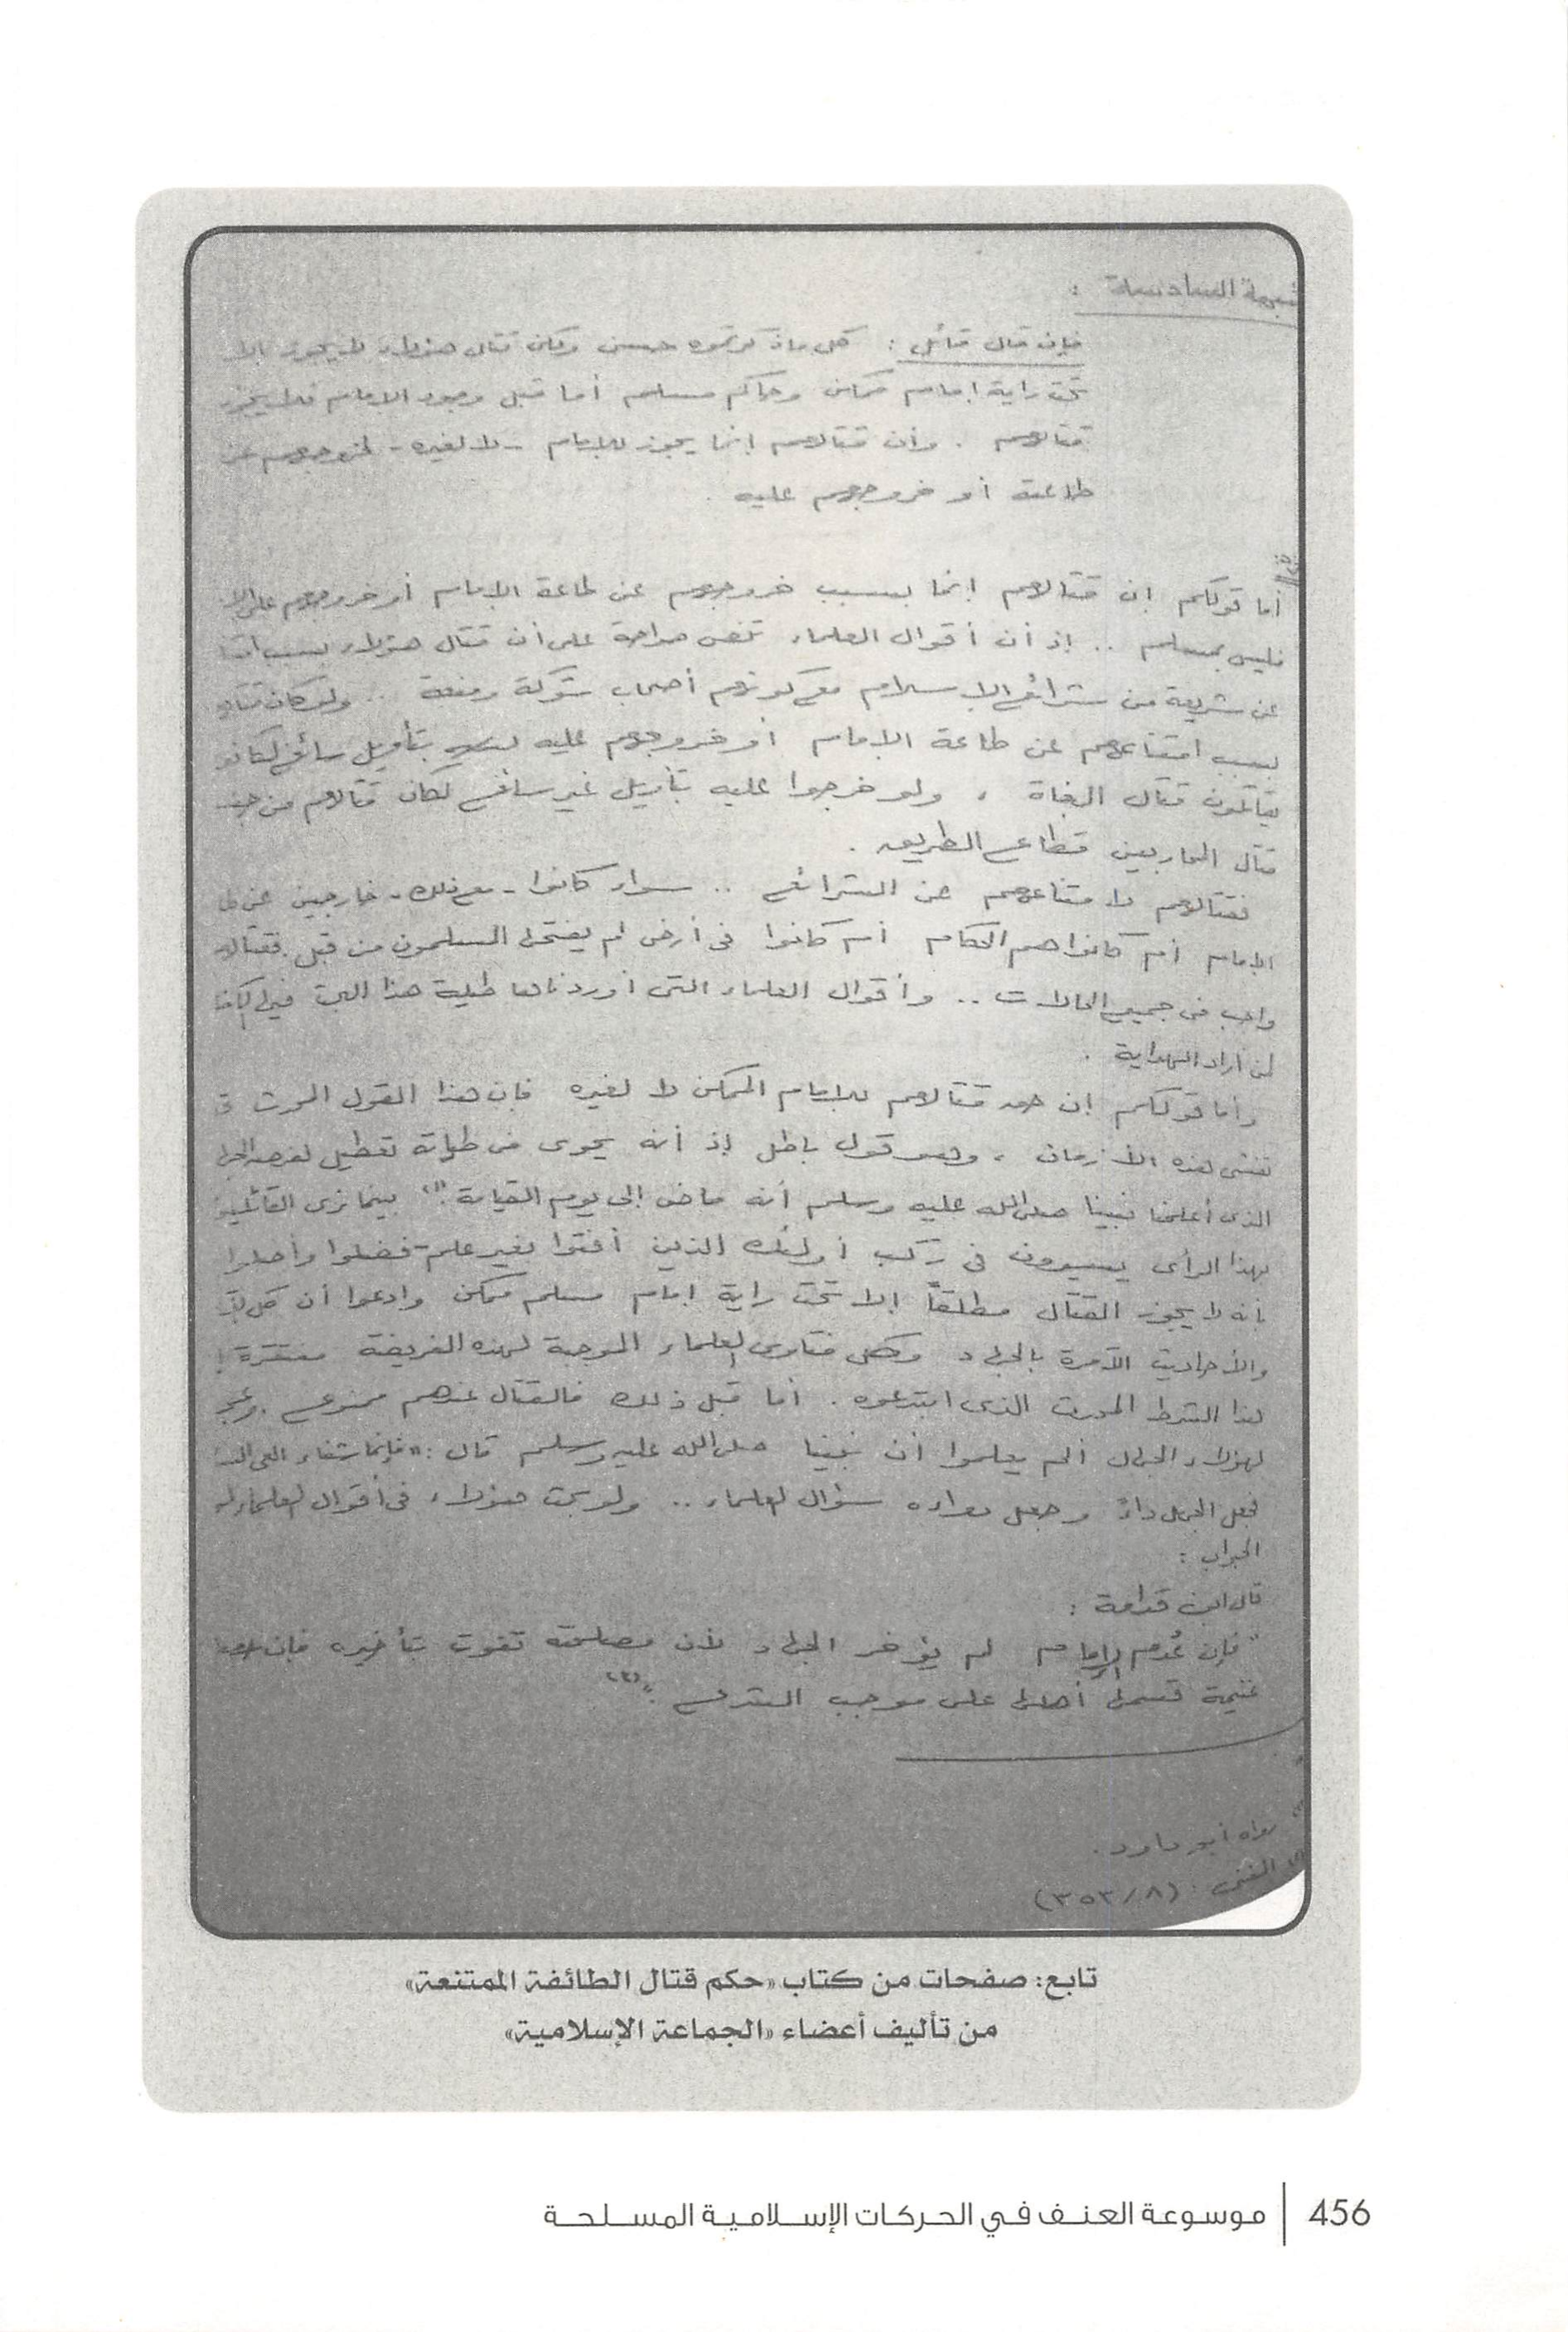 شبهة السادسة :
فإن قال قائل : كل ما ذكرتموه حسن ولكن قتال هؤلاء لا يجوز إلا
تحت راية إمام ممكن وحاكم مسلم أما قبل وجود الإمام فلا يجوز
قتالهم . وأن قتالهم إنما يجوز للإمام - لا لغيره - لخروجهم عن
طاعته أو خروجهم عليه .
أما قولكم إن قتالهم إنما بسبب خروجهم عن طاعة الإمام أو خروجهم على
فليس بمسلم .. إذ أن أقوال العلماء تنص صراحة على أن قتال هؤلاء بسبب
عن شريعة من شرائع الإسلام مع كونهم أصحاب شوكة ومنعة .. ولو كان
بسبب امتناعهم عن طاعة الإمام أو خروجهم عليه بتأويل سائغ لكانوا
يقاتلون قتال البغاة ، ولو خرجوا عليه بتأويل غير سائغ لكان قتالهم من
قتال المحاربين قطاع الطريق .
فقتالهم لامتناعهم عن الشرائع .. سواء كانوا - مع ذلك - خارجين عن
الإمام أم كانوا هم الحكام أم كانوا فى أرض لم يفتحها المسلمون من قبل فقتالهم
واجب فى جميع الحالات .. وأقوال العلماء التى أوردناها طيلة هذا البحث فيها
لمن أراد الهداية .
وأما قولكم إن حق قتالهم للإمام الممكن لا لغيره فإن هذا القول المحدث
تفشى هذه الأزمان ، وهو قول باطل إذ أنه يحوى فى طياته تعطيل لفرض الجهاد
الذى أعلمنا نبينا صلى الله عليه وسلم أنه ماض إلى يوم القيامة "(١) بينما نرى القائلين
بهذا الرأى يسيرون فى ركب أولئك الذين أفتوا بغير علم - فضلوا وأضلوا
بأنه لا يجوز القتال مطلقاً إلا تحت راية إمام مسلم ممكن وادعوا أن كل
والأحاديث الآمرة بالجهاد وكل فتاوى العلماء الموجبة لهذه الفريضة مفتقرة
لهذا الشرط المحدث الذى ابتدعوه . أما قبل ذلك فالقتال عندهم ممنوع .
لهؤلاء الجهال ألم يعلموا أن نبينا صلى الله عليه وسلم قال : "فإنما شفاء العى
فجعل الجهل داءً وجعل دواءه سؤال العلماء .. ولو بحث هؤلاء فى أقوال العلماء
الجواب :
قال ابن قدامة :
" فإن عُدم الإمام لم يؤخر الجهاد لأن مصلحته تفوت بتأخيره فإن
غنيمة قسمها أهلها على موجب الشرع "(٢)
رواه أبو داود .
المغنى : (٣٥٣/٨)
تابع: صفحات من كتاب «حكم قتال الطائفة الممتنعة»
من تأليف أعضاء «الجماعة الإسلامية»
456 | موسوعة العنف في الحركات الإسلامية المسلحة